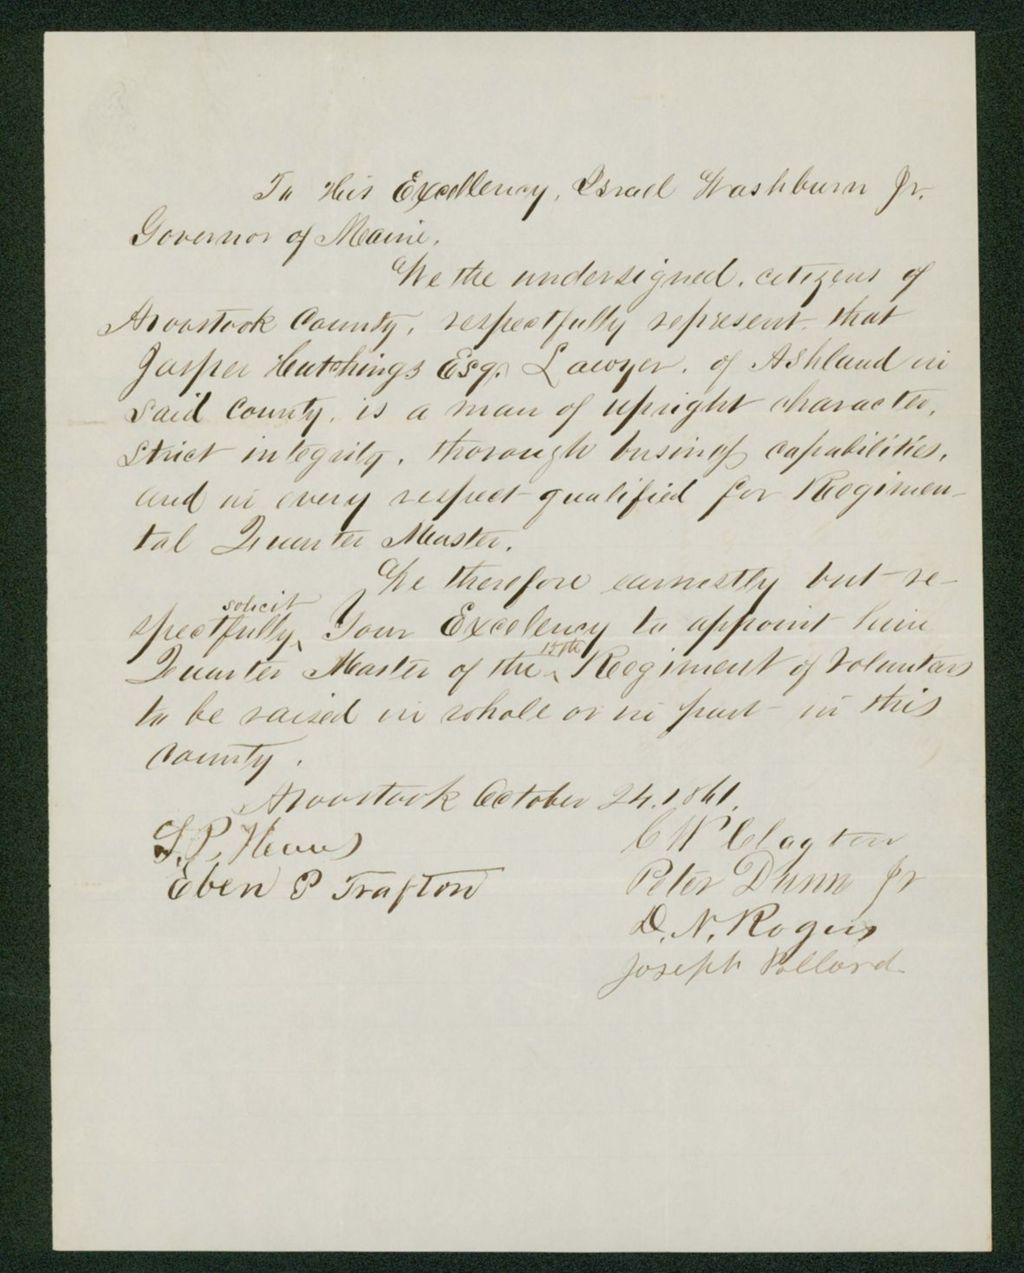 To His Excellency, Israel Washburn Jr.
Governor of Maine.
We the undersigned, citizens of
Aroostook County, respectfully represent that
Jasper Hutchings Esq. Lawyer, of Ashland in
said County, is a man of upright character,
strict integrity, thorough business capabilities,
and in every respect qualified for Regimen-
tal Quarter Master.
We therefore earnestly but re-
solicit
spectfully ‸ Your Excelency to appoint him
15th
Quarter Master of the ‸ Regiment of Voluntars
to be raised in whole or in part in this
County.
Aroostook October 24. 1861.
C W Clayton
Eben P Trafton
Peter Dunn Jr
D. N. Rogers
Joseph Pollard